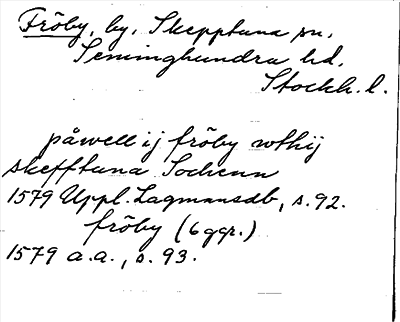 Fröby, by, Skepptuna sn,
Seminghundra hd,
Stockh. l.
påwell ij fröby wthij
skefftuna Sochenn
1579 Uppl. Lagmansdb, s. 92.
fröby (6 ggr.)
1579 a.a., s. 93.